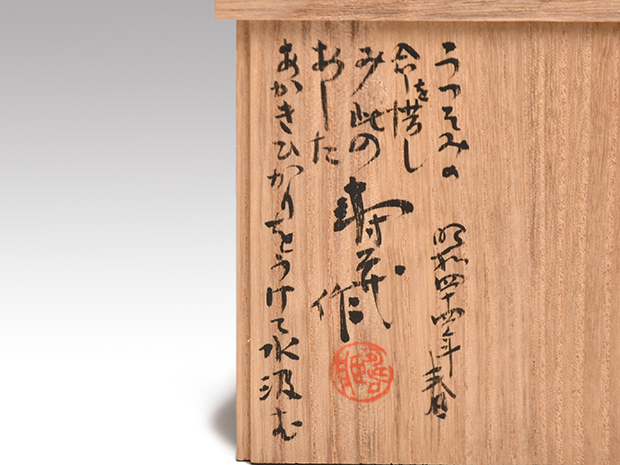 うつそみの
命を惜し
み此の
あした
あかきひかりをうけて水汲む
昭和四十四年春
作